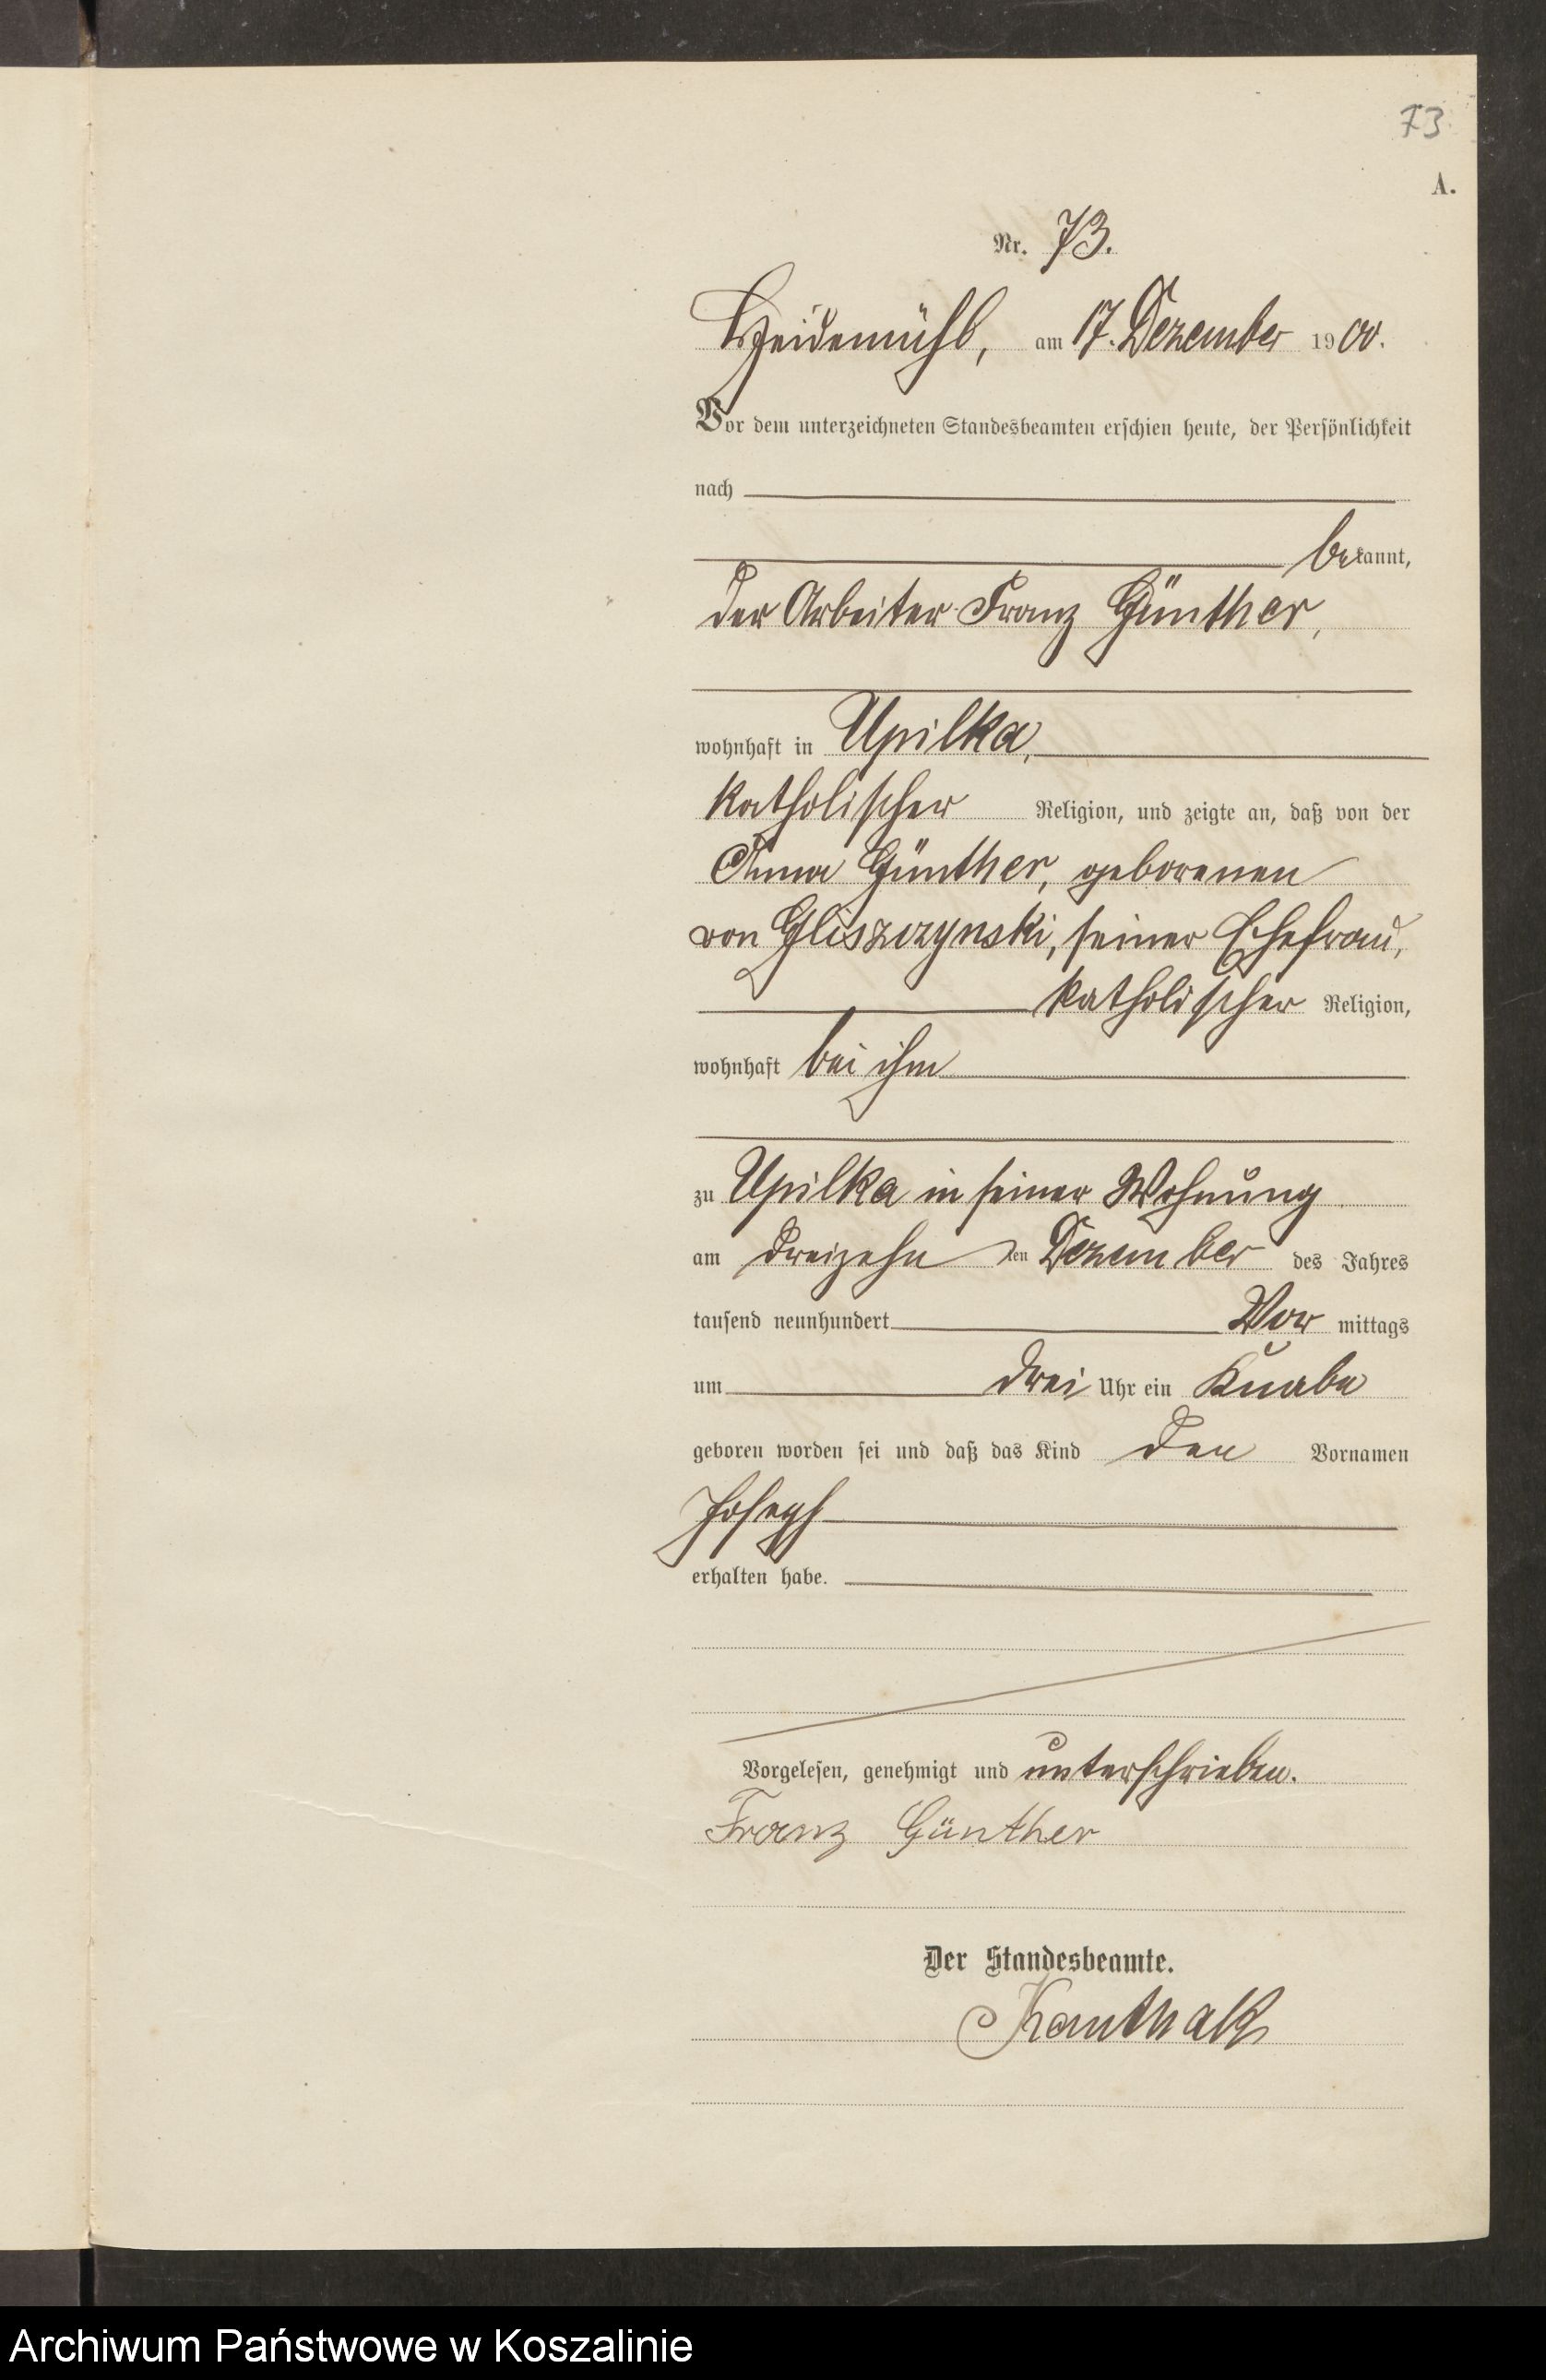 73
A.
Nr. 73.
Heidemühl, am 17. Dezember 1900.
Vor dem unterzeichneten Standesbeamten erschien heute, der Persönlichkeit
nach
bekannt,
der Arbeiter Franz Günther,
wohnhaft in Upilka,
katholischer Religion, und zeigte an, daß von der
Anna Günther, geborenen
von Gliszczynski, seiner Ehefrau,
katholischer Religion,
wohnhaft bei ihm
zu Upilka in seiner Wohnung
am dreizehn ten Dezember des Jahres
tausend neunhundert Vor mittags
um drei Uhr ein Knabe
geboren worden sei und daß das Kind den Vornamen
Joseph
erhalten habe.
Vorgelesen, genehmigt und unterschrieben.
Franz Günther
Der Standesbeamte.
Kanthak
Archiwum Państwowe w Koszalinie